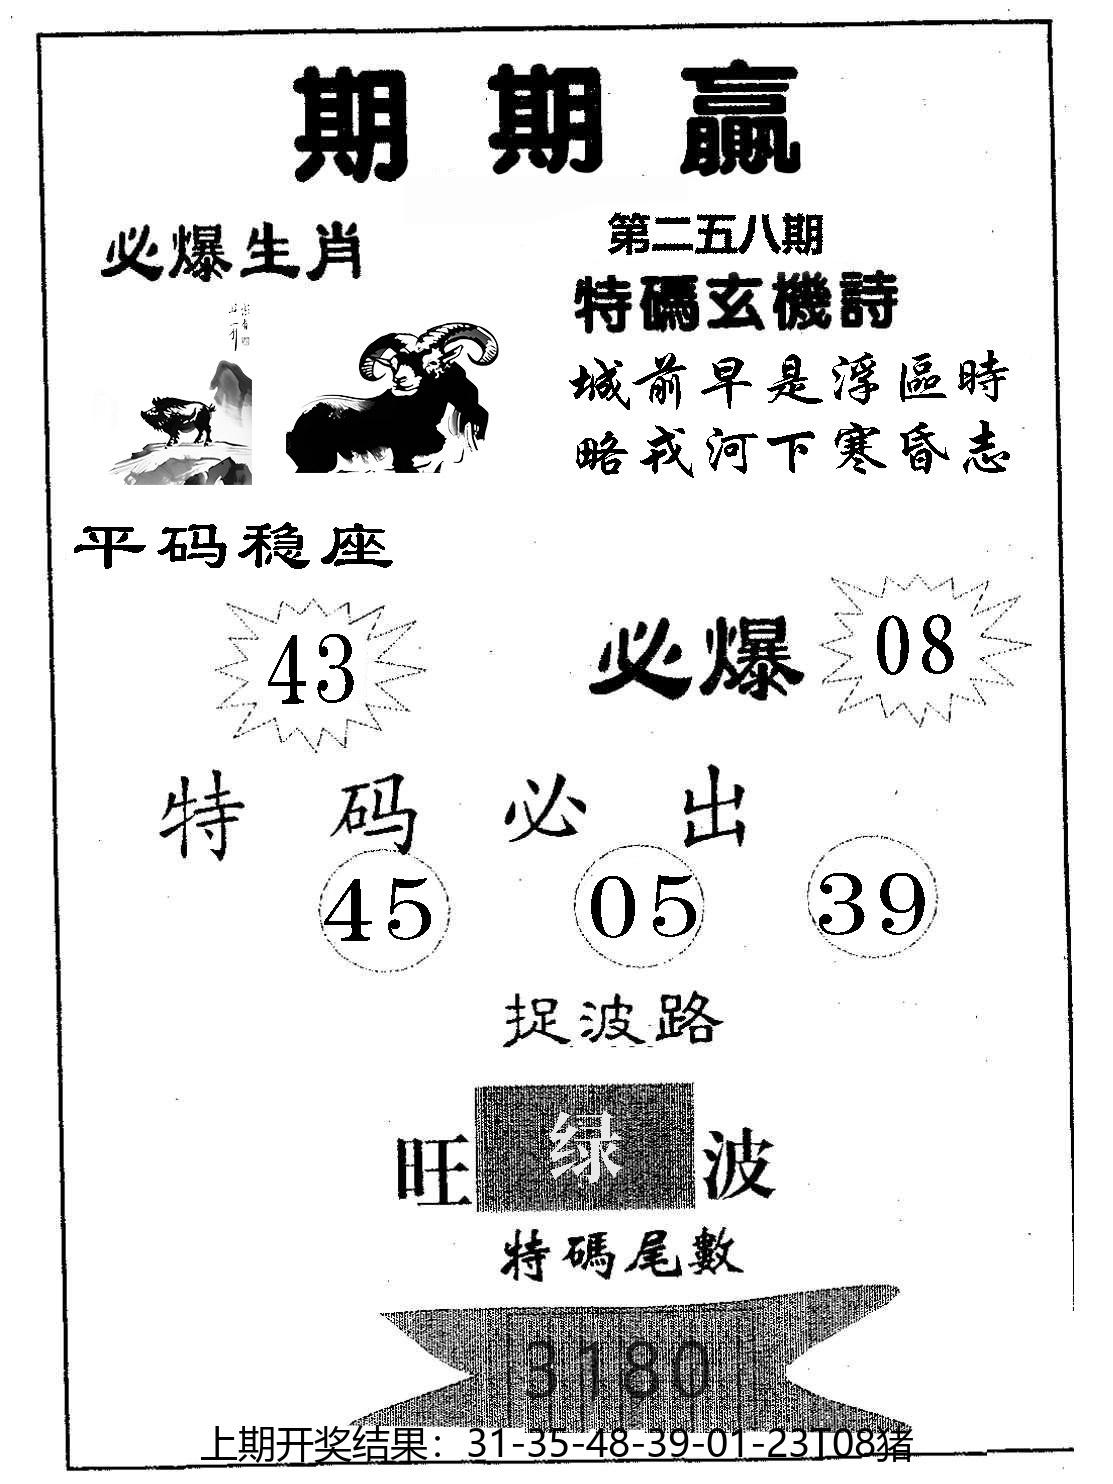 期期贏
必爆生肖
第二五八期
特碼玄機詩
城前早是浮區時
略戎河下寒昏志
平码稳座
43
必爆
08
特码必出
45 05 39
捉波路
旺绿波
特碼尾數
3180
上期开奖结果：31-35-48-39-01-23T08猪